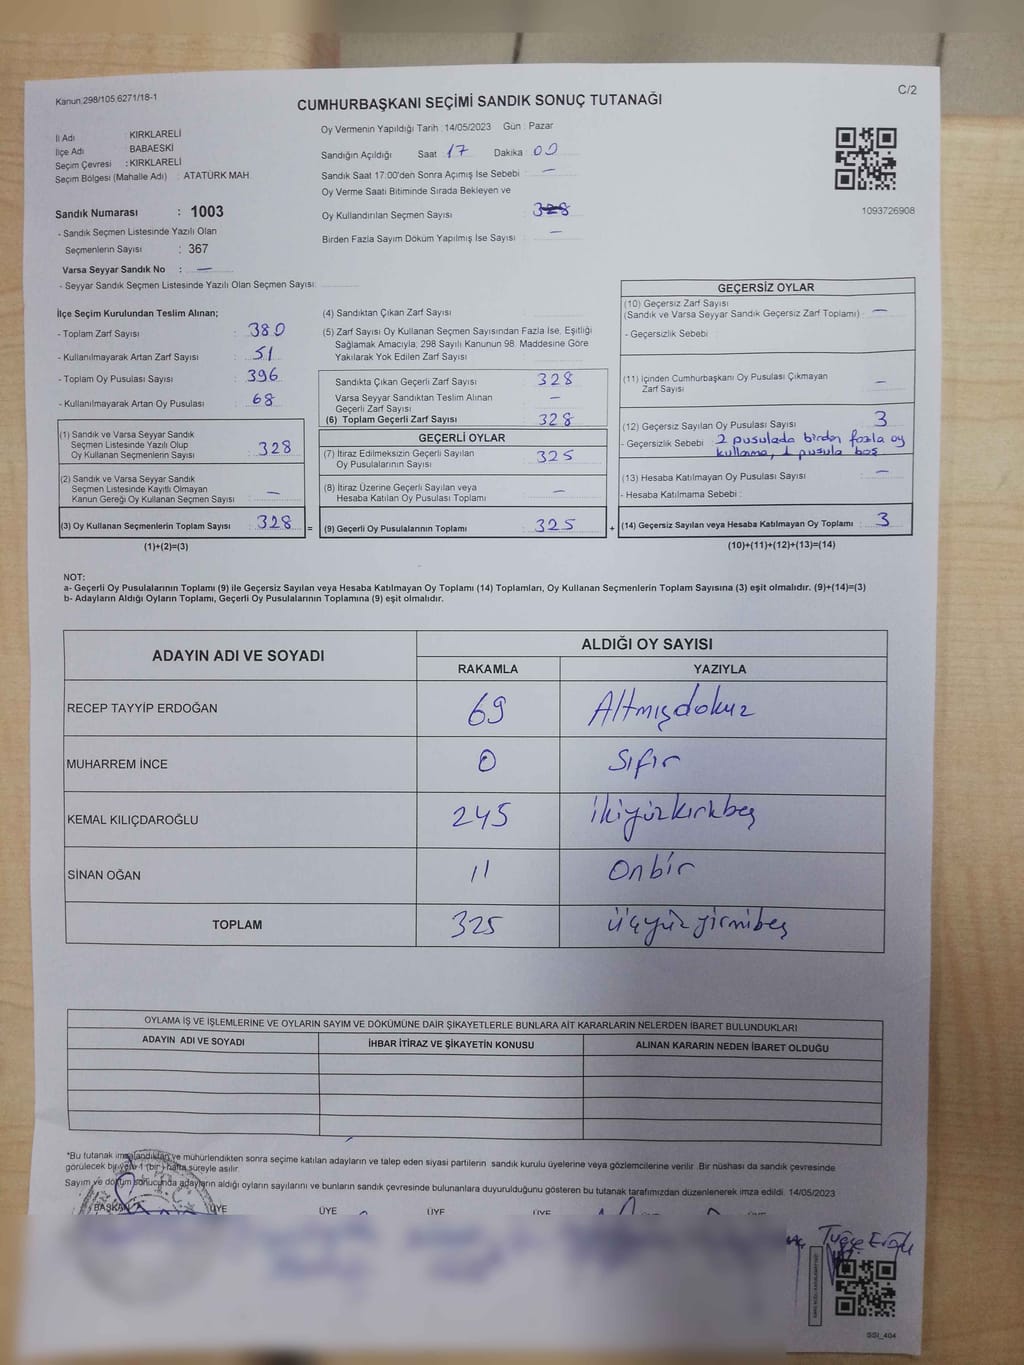 Kanun.298/105.6271/18-1
C/2
CUMHURBAŞKANI SEÇİMİ SANDIK SONUÇ TUTANAĞI
İl Adı KIRKLARELİ
İlçe Adı BABAESKİ
Seçim Çevresi : KIRKLARELİ
Seçim Bölgesi (Mahalle Adı) : ATATÜRK MAH
Sandık Numarası : 1003
- Sandık Seçmen Listesinde Yazılı Olan
Seçmenlerin Sayısı : 367
Varsa Seyyar Sandık No : —
- Seyyar Sandık Seçmen Listesinde Yazılı Olan Seçmen Sayısı:
Oy Vermenin Yapıldığı Tarih : 14/05/2023 Gün : Pazar
Sandığın Açıldığı Saat 17 Dakika 00
Sandık Saat 17:00'den Sonra Açımış İse Sebebi : —
Oy Verme Saati Bitiminde Sırada Bekleyen ve
Oy Kullandırılan Seçmen Sayısı : 328
Birden Fazla Sayım Döküm Yapılmış İse Sayısı : —
1093726908
İlçe Seçim Kurulundan Teslim Alınan;
- Toplam Zarf Sayısı : 380
- Kullanılmayarak Artan Zarf Sayısı : 51
- Toplam Oy Pusulası Sayısı : 396
- Kullanılmayarak Artan Oy Pusulası : 68
(1) Sandık ve Varsa Seyyar Sandık
Seçmen Listesinde Yazılı Olup
Oy Kullanan Seçmenlerin Sayısı : 328
(2) Sandık ve Varsa Seyyar Sandık
Seçmen Listesinde Kayıtlı Olmayan
Kanun Gereği Oy Kullanan Seçmen Sayısı : —
(3) Oy Kullanan Seçmenlerin Toplam Sayısı : 328
(1)+(2)=(3)
=
(4) Sandıktan Çıkan Zarf Sayısı :
(5) Zarf Sayısı Oy Kullanan Seçmen Sayısından Fazla İse, Eşitliği
Sağlamak Amacıyla; 298 Sayılı Kanunun 98. Maddesine Göre
Yakılarak Yok Edilen Zarf Sayısı :
Sandıkta Çıkan Geçerli Zarf Sayısı : 328
Varsa Seyyar Sandıktan Teslim Alınan
Geçerli Zarf Sayısı : —
(6) Toplam Geçerli Zarf Sayısı : 328
GEÇERLİ OYLAR
(7) İtiraz Edilmeksizin Geçerli Sayılan
Oy Pusulalarının Sayısı : 325
(8) İtiraz Üzerine Geçerli Sayılan veya
Hesaba Katılan Oy Pusulası Toplamı : —
(9) Geçerli Oy Pusulalarının Toplamı : 325
+
GEÇERSİZ OYLAR
(10) Geçersiz Zarf Sayısı
(Sandık ve Varsa Seyyar Sandık Geçersiz Zarf Toplamı) : —
- Geçersizlik Sebebi :
(11) İçinden Cumhurbaşkanı Oy Pusulası Çıkmayan
Zarf Sayısı : —
(12) Geçersiz Sayılan Oy Pusulası Sayısı : 3
- Geçersizlik Sebebi : 2 pusulada birden fazla oy
kullanma, 1 pusula boş
(13) Hesaba Katılmayan Oy Pusulası Sayısı : —
- Hesaba Katılmama Sebebi :
(14) Geçersiz Sayılan veya Hesaba Katılmayan Oy Toplamı : 3
(10)+(11)+(12)+(13)=(14)
NOT:
a- Geçerli Oy Pusulalarının Toplamı (9) ile Geçersiz Sayılan veya Hesaba Katılmayan Oy Toplamı (14) Toplamları, Oy Kullanan Seçmenlerin Toplam Sayısına (3) eşit olmalıdır. (9)+(14)=(3)
b- Adayların Aldığı Oyların Toplamı, Geçerli Oy Pusulalarının Toplamına (9) eşit olmalıdır.
ADAYIN ADI VE SOYADI
ALDIĞI OY SAYISI
RAKAMLA YAZIYLA
RECEP TAYYİP ERDOĞAN 69 Altmışdokuz
MUHARREM İNCE 0 Sıfır
KEMAL KILIÇDAROĞLU 245 İkiyüzkırkbeş
SİNAN OĞAN 11 Onbir
TOPLAM 325 üçyüzyirmibeş
OYLAMA İŞ VE İŞLEMLERİNE VE OYLARIN SAYIM VE DÖKÜMÜNE DAİR ŞİKAYETLERLE BUNLARA AİT KARARLARIN NELERDEN İBARET BULUNDUKLARI
ADAYIN ADI VE SOYADI İHBAR İTİRAZ VE ŞİKAYETİN KONUSU ALINAN KARARIN NEDEN İBARET OLDUĞU
*Bu tutanak imzalandıktan ve mühürlendikten sonra seçime katılan adayların ve talep eden siyasi partilerin sandık kurulu üyelerine veya gözlemcilerine verilir. Bir nüshası da sandık çevresinde
görülecek bir yere 1 (bir) hafta süreyle asılır.
Sayım ve döküm sonucunda adayların aldığı oyların sayılarını ve bunların sandık çevresinde bulunanlara duyurulduğunu gösteren bu tutanak tarafımızdan düzenlenerek imza edildi. 14/05/2023
BAŞKAN ÜYE ÜYE ÜYE ÜYE ÜYE
Tuğçe
SSI_404